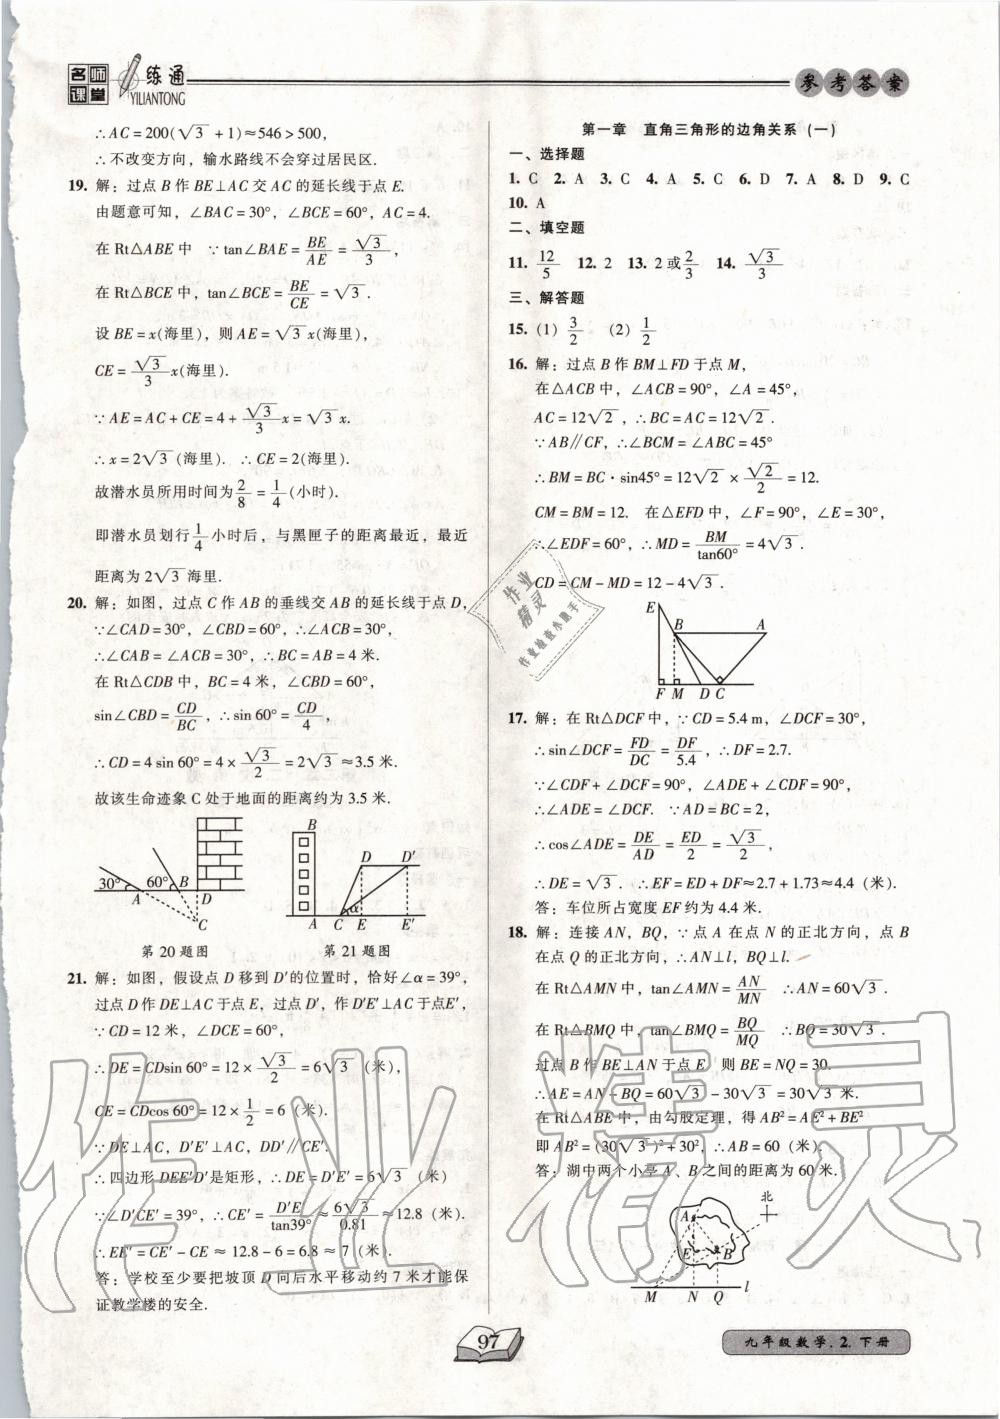 名师课堂
一练通
YILIANTONG
参考答案
∴AC=200(√3+1)≈546>500,
∴不改变方向,输水路线不会穿过居民区.
19. 解:过点B作BE⊥AC交AC的延长线于点E.
由题意可知,∠BAC=30°,∠BCE=60°,AC=4.
在Rt△ABE中 ∵tan∠BAE=BE/AE=√3/3,
在Rt△BCE中,tan∠BCE=BE/CE=√3.
设BE=x(海里),则AE=√3x(海里),
CE=√3/3x(海里).
∵AE=AC+CE=4+√3/3x=√3x.
∴x=2√3(海里). ∴CE=2(海里).
故潜水员所用时间为2/8=1/4(小时).
即潜水员划行1/4小时后,与黑匣子的距离最近,最近
距离为2√3海里.
20. 解:如图,过点C作AB的垂线交AB的延长线于点D,
∵∠CAD=30°,∠CBD=60°,∴∠ACB=30°,
∴∠CAB=∠ACB=30°,∴BC=AB=4米.
在Rt△CDB中,BC=4米,∠CBD=60°,
sin∠CBD=CD/BC,∴sin60°=CD/4,
∴CD=4sin60°=4×√3/2=2√3≈3.5米.
故该生命迹象C处于地面的距离约为3.5米.
30° 60° B
A D
C
第20题图
B
D D′
α
A C E E′
第21题图
21. 解:如图,假设点D移到D′的位置时,恰好∠α=39°,
过点D作DE⊥AC于点E,过点D′,作D′E′⊥AC于点E′,
∵CD=12米,∠DCE=60°,
∴DE=CDsin60°=12×√3/2=6√3(米),
CE=CDcos60°=12×1/2=6(米).
∵DE⊥AC,D′E′⊥AC,DD′∥CE′.
∴四边形DEE′D′是矩形,∴DE=D′E′=6√3(米)
∵∠D′CE′=39°,∴CE′=D′E′/tan39°≈6√3/0.81≈12.8(米).
∴EE′=CE′-CE≈12.8-6=6.8≈7(米).
答:学校至少要把坡顶D向后水平移动约7米才能保
证教学楼的安全.
第一章 直角三角形的边角关系(一)
一、选择题
1. C 2. A 3. C 4. A 5. C 6. D 7. A 8. D 9. C
10. A
二、填空题
11. 12/5 12. 2 13. 2或2/3 14. √3/3
三、解答题
15. (1) 3/2 (2) 1/2
16. 解:过点B作BM⊥FD于点M,
在△ACB中,∠ACB=90°,∠A=45°,
AC=12√2,∴BC=AC=12√2.
∵AB∥CF,∴∠BCM=∠ABC=45°
∴BM=BC·sin45°=12√2×√2/2=12.
CM=BM=12. 在△EFD中,∠F=90°,∠E=30°,
∴∠EDF=60°,∴MD=BM/tan60°=4√3.
CD=CM-MD=12-4√3.
E
B A
F M D C
17. 解:在Rt△DCF中,∵CD=5.4m,∠DCF=30°,
∴sin∠DCF=FD/DC=DF/5.4,∴DF=2.7.
∵∠CDF+∠DCF=90°,∠ADE+∠CDF=90°,
∴∠ADE=∠DCF. ∵AD=BC=2,
∴cos∠ADE=DE/AD=ED/2=√3/2,
∴DE=√3.∴EF=ED+DF≈2.7+1.73≈4.4(米).
答:车位所占宽度EF约为4.4米.
18. 解:连接AN,BQ,∵点A在点N的正北方向,点B
在点Q的正北方向,∴AN⊥l,BQ⊥l.
在Rt△AMN中,tan∠AMN=AN/MN ∴AN=60√3.
在Rt△BMQ中,tan∠BMQ=BQ/MQ ∴BQ=30√3.
过点B作BE⊥AN于点E 则BE=NQ=30.
∴AE=AN-BQ=60√3-30√3=30√3米.
在Rt△ABE中,由勾股定理,得AB²=AE²+BE²
即AB²=(30√3)²+30²,∴AB=60(米).
答:湖中两个小亭A、B之间的距离为60米.
北
A
E B
M N Q l
97
九年级数学.2.下册
作业精灵
作业检查小助手
作业精灵